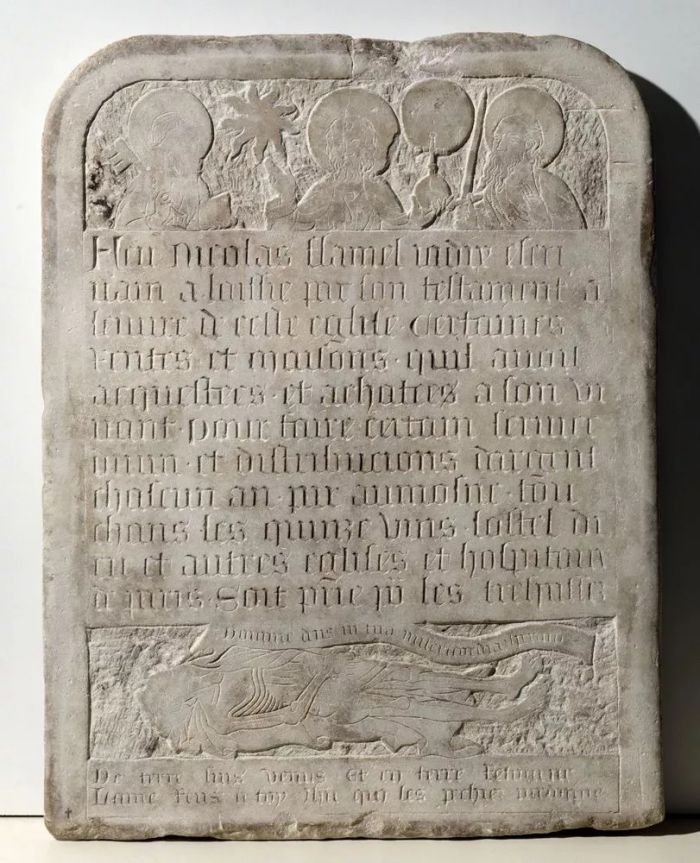 Feu nicolas flamel iadiz escri
uain a laissie par son testament a
leuure de ceste eglise certaines
rentes et maisons quil auoit
acquestees et achatees a son vi
uant pour faire certain seruice
diuin et distribucions dargent
chascun an par aumosne tou
chans les quinze vins lostel di
eu et autres eglises et hospitaux
de paris Soit prie por les trespasses
domine deus in tua misericordia speraui
De terre suis venus et en terre retourne
Lame rens a toy ihu qui les pechies pardonne